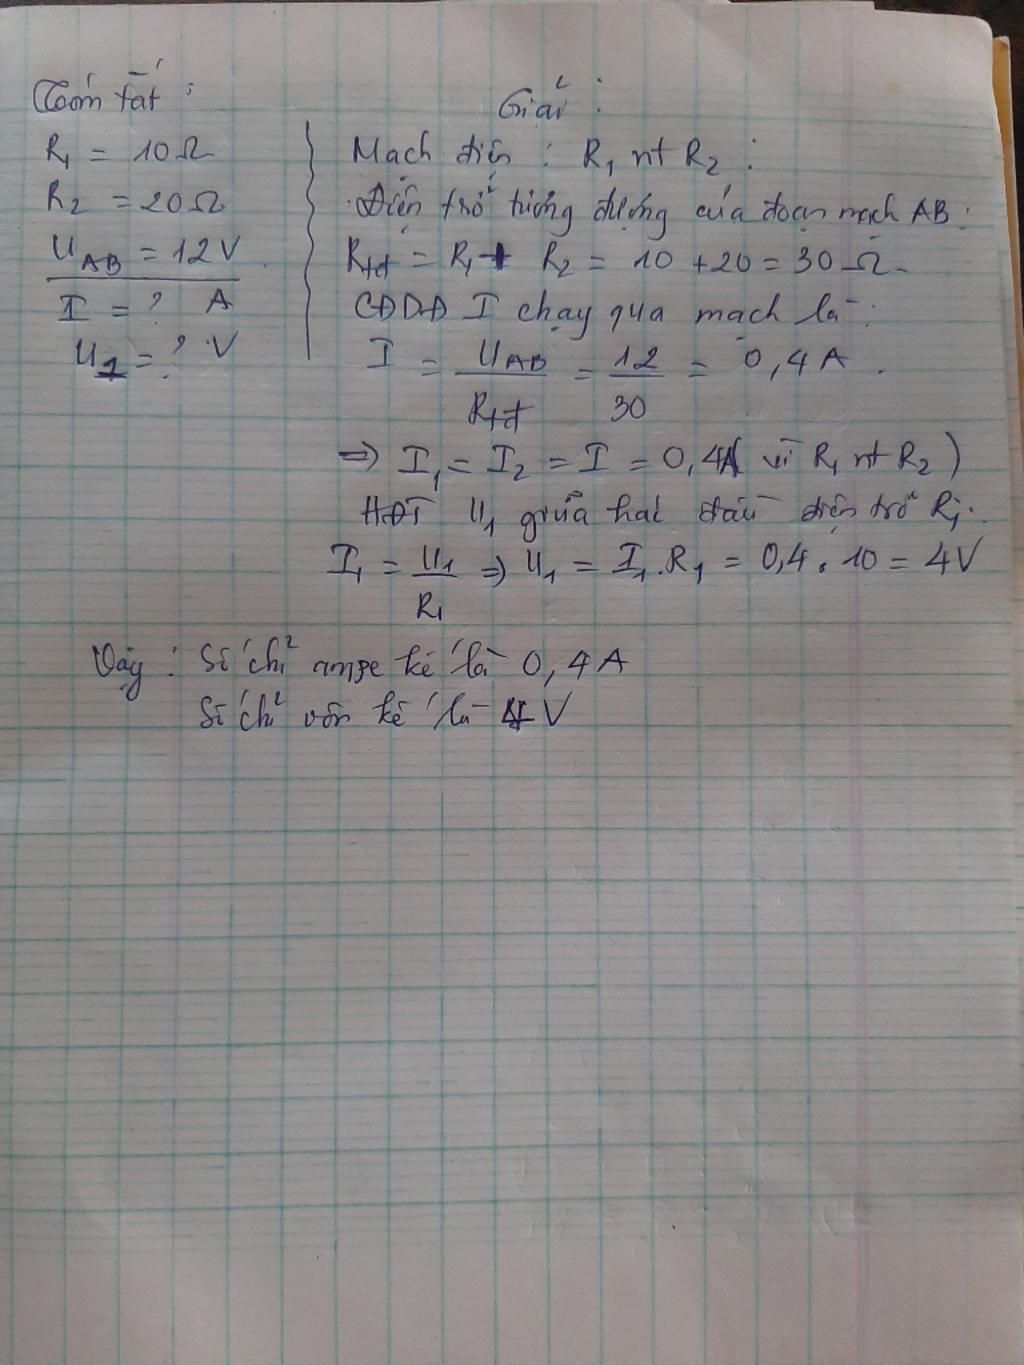 Tóm tắt :
R1 = 10 Ω
R2 = 20 Ω
UAB = 12 V
I = ? A
U1 = ? V
Giải :
Mạch điện : R1 nt R2 :
Điện trở tương đương của đoạn mạch AB :
Rtđ = R1 + R2 = 10 + 20 = 30 Ω.
CĐDĐ I chạy qua mạch là :
I = UAB / Rtđ = 12 / 30 = 0,4 A .
=> I1 = I2 = I = 0,4A ( vì R1 nt R2 )
HĐT U1 giữa hai đầu điện trở R1.
I1 = U1 / R1 => U1 = I1 . R1 = 0,4 . 10 = 4V
Vậy : Số chỉ ampe kế là 0,4 A
Số chỉ vôn kế là 4 V